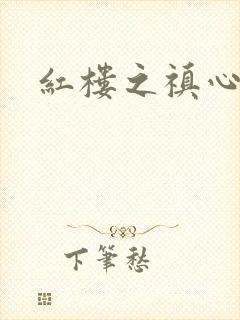 紅樓之禛心
下筆愁